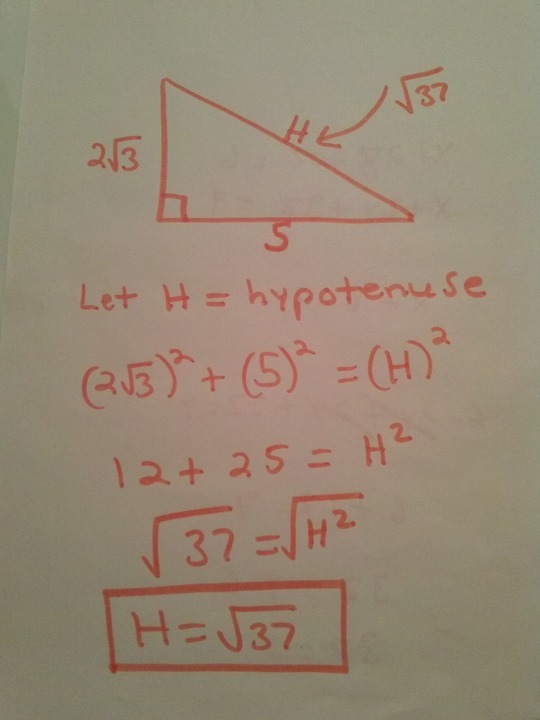 √37
H
2√3
5
Let H = hypotenuse
(2√3)² + (5)² = (H)²
12 + 25 = H²
√37 = √H²
H = √37